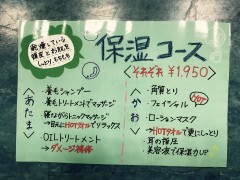 乾燥している
頭皮とお肌を
しっとり、もちもち
保湿コース
<それぞれ ¥1,950>
あたま
・養毛シャンプー
・養毛トリートメントでマッサージ
・寝ながらトニックマッサージ
→首にHOTタオルでリラックス
・OILトリートメント
→ダメージ補修
かお
・角質とり
・フェイシャル
HOT
・ローションマスク
→HOTタオルで更にしっとり
・耳の指圧
・美容液で保湿力UP